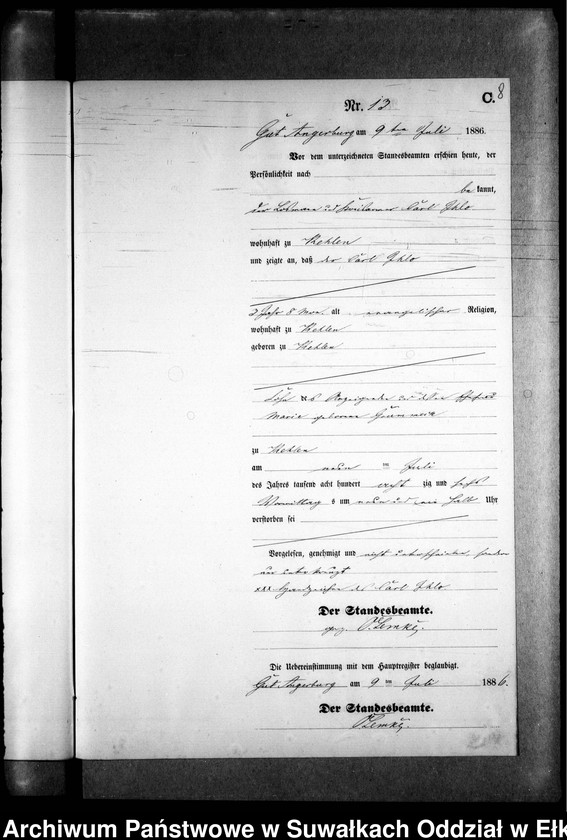 C. 8
Nr. 13
Gut Angerburg am 9 ten Juli 1886.
Vor dem unterzeichneten Standesbeamten erschien heute, der
Persönlichkeit nach
be kannt,
der Carl
wohnhaft zu Kehlen
und zeigte an, daß der Carl
2 Jahr 8 Mon. alt evangelischer Religion,
wohnhaft zu Kehlen
geboren zu Kehlen
Sohn des und dessen Ehefrau
Maria geborene
zu Kehlen
am neun ten Juli
des Jahres tausend acht hundert acht zig und sechs
Vormittag s um neun und ein halb Uhr
verstorben sei
Vorgelesen, genehmigt und nicht unterschrieben, sondern
unterkreuzt
xxx Handzeichen des Carl
Der Standesbeamte.
gez. Lemke.
Die Uebereinstimmung mit dem Hauptregister beglaubigt.
Gut Angerburg am 9 ten Juli 1886.
Der Standesbeamte.
Lemke.
Archiwum Państwowe w Suwałkach Oddział w Ełk